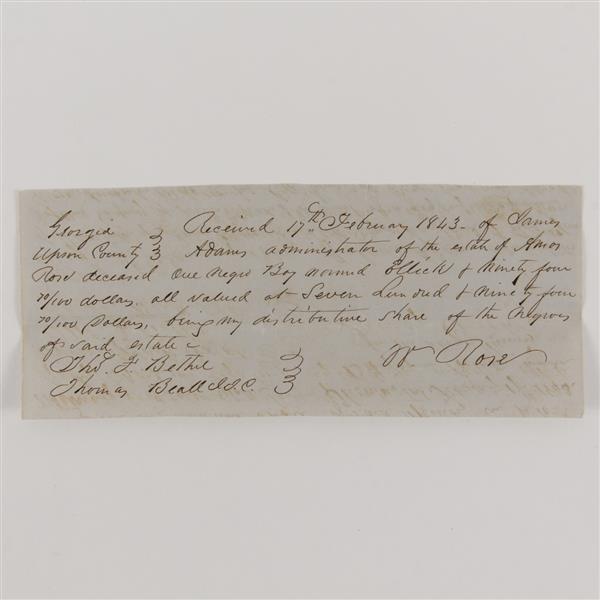 Georgia } Received 17th February 1843 - of James
Upson County } Adams administrator of the estate of Amos
Rose deceased One Negro Boy named Ellick & Ninety four
70/100 dollars, all valued at Seven Hundred & Ninety four
70/100 Dollars, being my distributive Share of the Negroes
of said estate -
Thos. F. Bethel } W Rose
Thomas Beall J.I.C. }